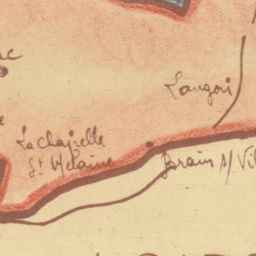 Langon
La Chapelle
St Melaine
Brain s/ Vil